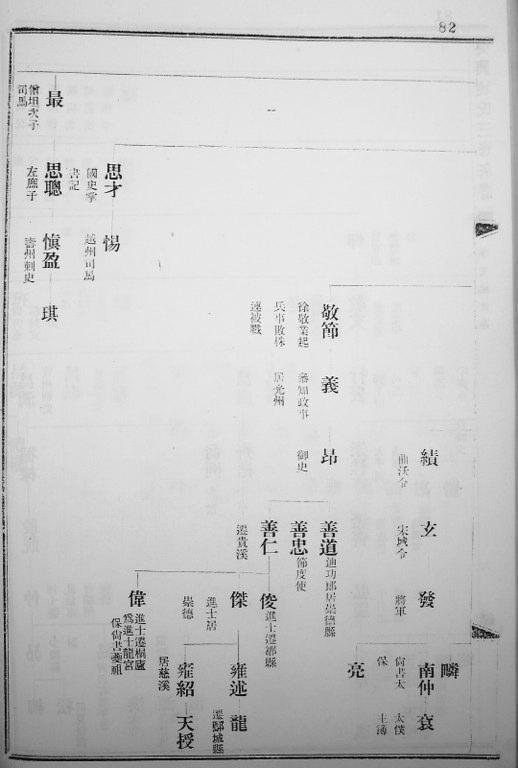 82
疄
績 曲沃令
玄 宋城令
發 將軍
南仲 尙書太保
袞 太僕主溥
亮
敬節 徐敬業起兵事敗株連被戮
義 參知政事居光州
昂 御史
善道 迪功郎居崇德縣
善忠 節度使
善仁 遷貴溪
俊 進士遷鄉縣
傑 進士居崇德
雍述
龍 遷鄞城縣
雍紹 居慈溪
天授
偉 進士遷桐廬爲進士龍宮保尙書夔祖
思才 國史掌書記
惕 越州司馬
最 僧坦次子司馬
思聰 左庶子
慎盈 壽州刺史
琪